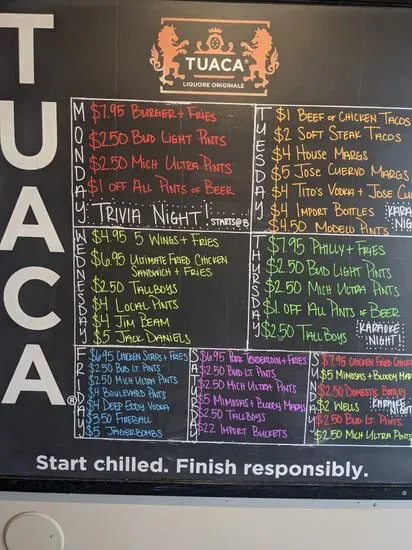 TUACA
TUACA
LIQUORE ORIGINALE
MONDAY
$7.95 BURGER + FRIES
$2.50 BUD LIGHT PINTS
$2.50 MICH ULTRA PINTS
$1 OFF ALL PINTS OF BEER
TRIVIA NIGHT! STARTS @ 8
TUESDAY
$1 BEEF OR CHICKEN TACOS
$2 SOFT STEAK TACOS
$4 HOUSE MARGS
$5 JOSE CUERVO MARGS
$4 TITO'S VODKA + JOSE CU
$4 IMPORT BOTTLES
$4.50 MODELO PINTS
KARA
NIG
WEDNESDAY
$4.95 5 WINGS + FRIES
$6.95 ULTIMATE FRIED CHICKEN
SANDWICH + FRIES
$2.50 TALLBOYS
$4 LOCAL PINTS
$4 JIM BEAM
$5 JACK DANIELS
THURSDAY
$7.95 PHILLY + FRIES
$2.50 BUD LIGHT PINTS
$2.50 MICH ULTRA PINTS
$1 OFF ALL PINTS OF BEER
$2.50 TALL BOYS
KARAOKE
NIGHT!
FRIDAY
$6.95 CHICKEN STRIPS + FRIES
$2.50 BUD LT. PINTS
$2.50 MICH ULTRA PINTS
$4 BOULEVARD PINTS
$4 DEEP EDDY VODKA
$3.50 FIREBALL
$5 JAGERBOMBS
SATURDAY
$6.95 PORK TENDERLOIN + FRIES
$2.50 BUD LT. PINTS
$2.50 MICH ULTRA PINTS
$5 MIMOSAS + BLOODY MARYS
$2.50 TALLBOYS
$22 IMPORT BUCKETS
SUNDAY
$7.95 CHICKEN FRIED CHICKE
$5 MIMOSAS + BLOODY MAR
$2.50 DOMESTIC BOTTLES
$2 WELLS
$2.50 BUD LT. PINTS
$2.50 MICH ULTRA PINTS
KARAOKE
NIGHT
Start chilled. Finish responsibly.